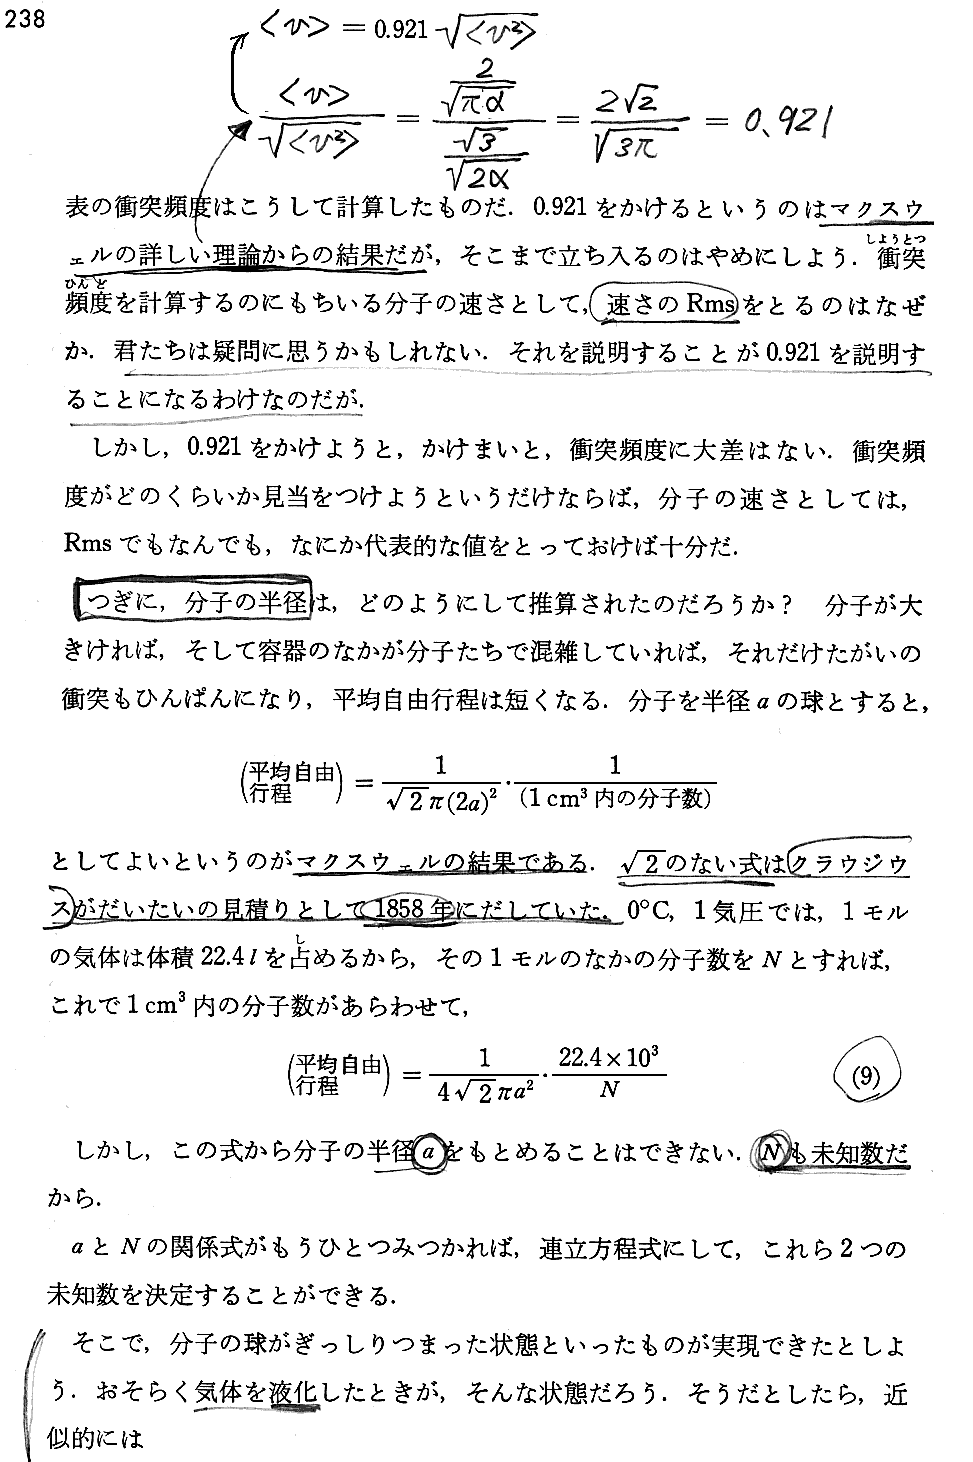 238
<v> = 0.921 √<v²>
<v>/√<v²> = (2/√πα)/(√3/√2α) = 2√2/√3π = 0.921
表の衝突頻度はこうして計算したものだ．0.921をかけるというのはマクスウ
ェルの詳しい理論からの結果だが，そこまで立ち入るのはやめにしよう．衝突(しようとつ)
頻度(ひんど)を計算するのにもちいる分子の速さとして，速さのRmsをとるのはなぜ
か．君たちは疑問に思うかもしれない．それを説明することが0.921を説明す
ることになるわけなのだが．
しかし，0.921をかけようと，かけまいと，衝突頻度に大差はない．衝突頻
度がどのくらいか見当をつけようというだけならば，分子の速さとしては，
Rmsでもなんでも，なにか代表的な値をとっておけば十分だ．
つぎに，分子の半径は，どのようにして推算されたのだろうか？ 分子が大
きければ，そして容器のなかが分子たちで混雑していれば，それだけたがいの
衝突もひんぱんになり，平均自由行程は短くなる．分子を半径aの球とすると，
(平均自由行程) = 1/(√2π(2a)²)・1/(1cm³内の分子数)
としてよいというのがマクスウェルの結果である．√2のない式はクラウジウ
スがだいたいの見積りとして1858年にだしていた．0°C，1気圧では，1モル
の気体は体積22.4lを占(し)めるから，その1モルのなかの分子数をNとすれば，
これで1cm³内の分子数があらわせて，
(平均自由行程) = 1/(4√2πa²)・(22.4×10³)/N (9)
しかし，この式から分子の半径aをもとめることはできない．Nも未知数だ
から．
aとNの関係式がもうひとつみつかれば，連立方程式にして，これら2つの
未知数を決定することができる．
そこで，分子の球がぎっしりつまった状態といったものが実現できたとしよ
う．おそらく気体を液化したときが，そんな状態だろう．そうだとしたら，近
似的には